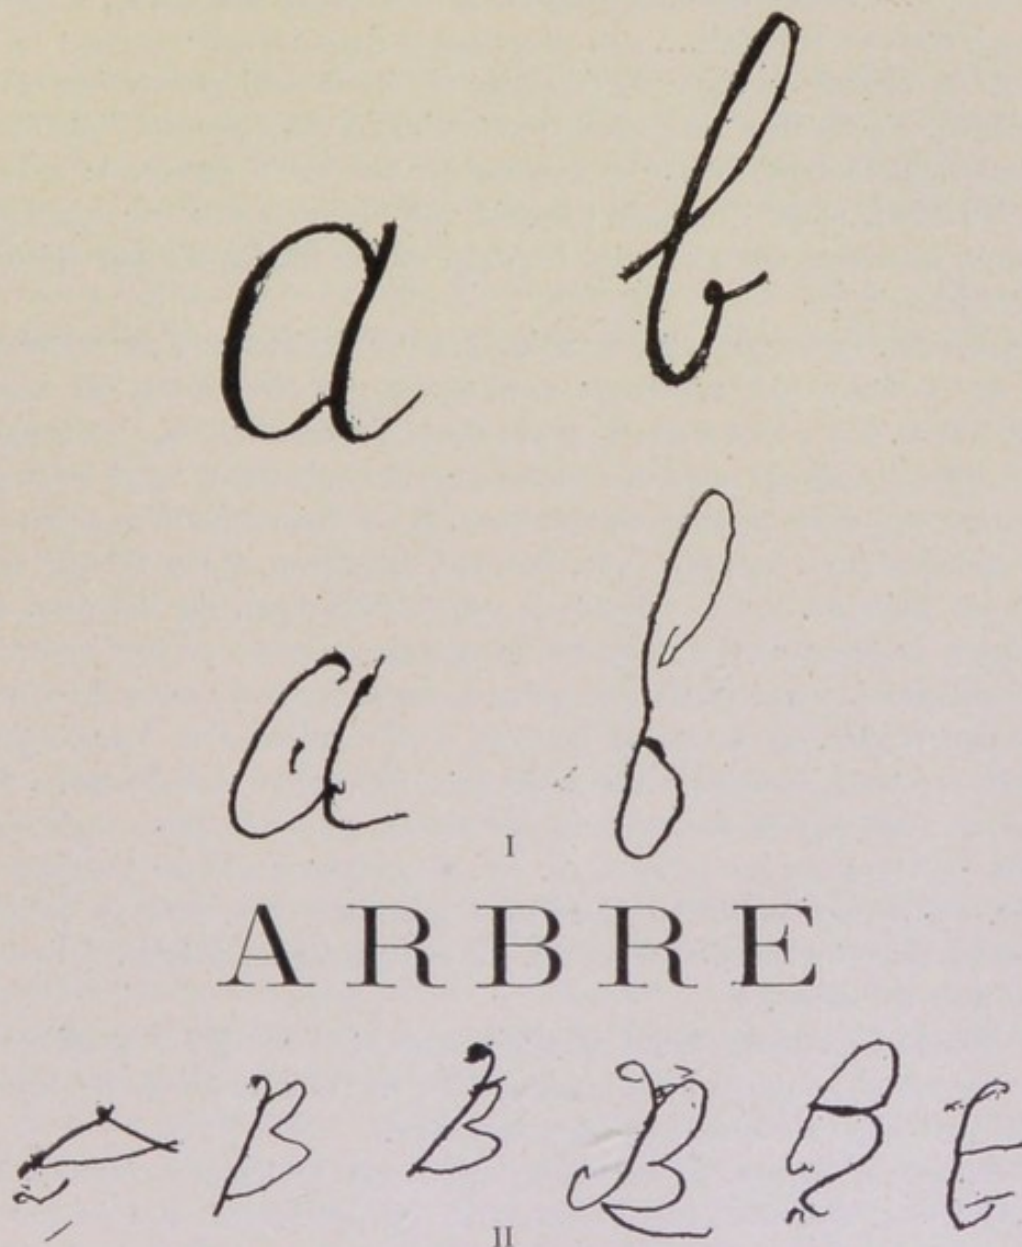 a b
a b
I
ARBRE
A B B B B E
II